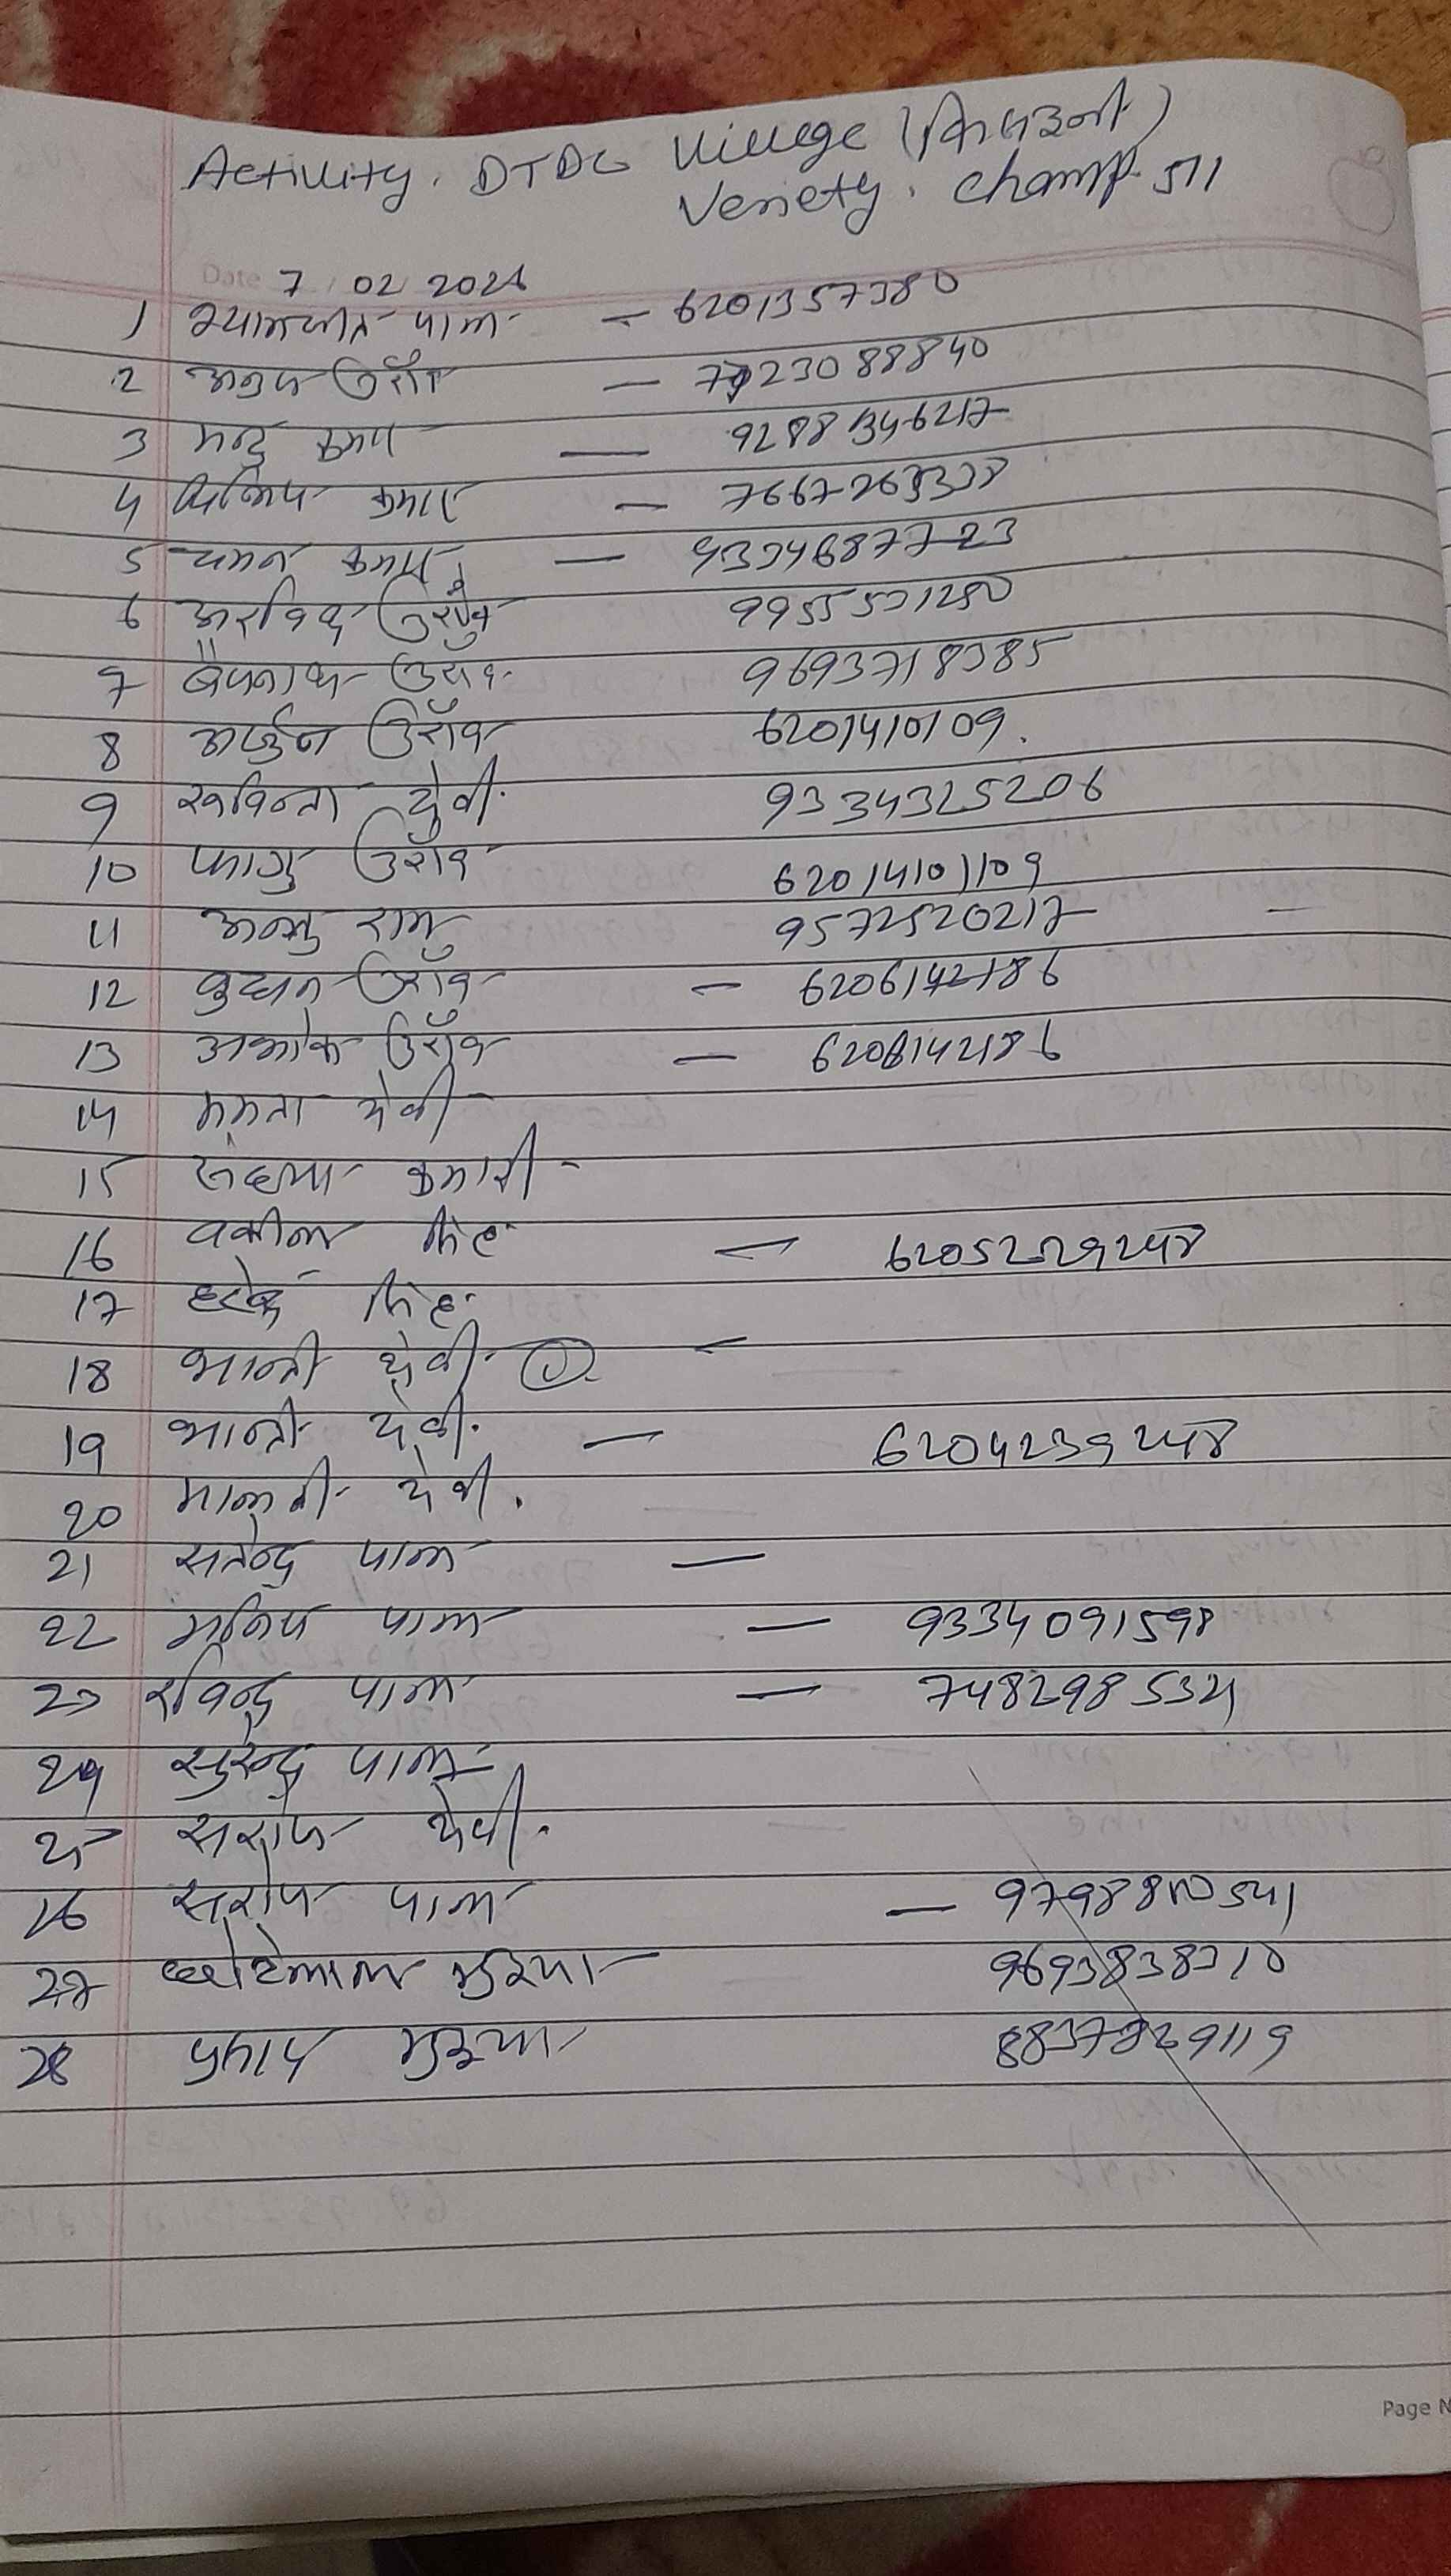 Activity. DTDC Village (
Veriety. Champ 511
Date 7 02 2026
1 श्यामजीत पाल - 6201357380
2 अनुज उराँव - 7023088840
3 नन्दु कुमार - 9288346217
4 दिलिप कुमार - 7667263338
5 चमन कुमार - 9334687723
6 अरविन्द उराँव 9955531250
7 बैजनाथ उराँव 9693718385
8 अर्जुन उराँव 6201410109.
9 सविन्ता देवी. 9334325206
10 फागु उराँव 62014101109
11 राम 9572520217 -
12 बुधन उराँव - 6206142186
13 अशोक उराँव - 6206142186
14 ममता देवी
15 संध्या कुमारी -
16 वकील सिंह - 6205229248
17 सिंह
18 शान्ती देवी. -
19 शान्ती देवी. - 6204239248
20 मालती देवी.
21 सतेन्द्र पाल -
22 मनिष पाल - 9334091598
23 रविन्द्र पाल - 7482985321
24 सुरेन्द्र पाल
25 सरोज देवी.
26 सरोज पाल - 9798810541
27 छोटेलाल भुइया 9693838310
28 भुइया 8837829119
Page N